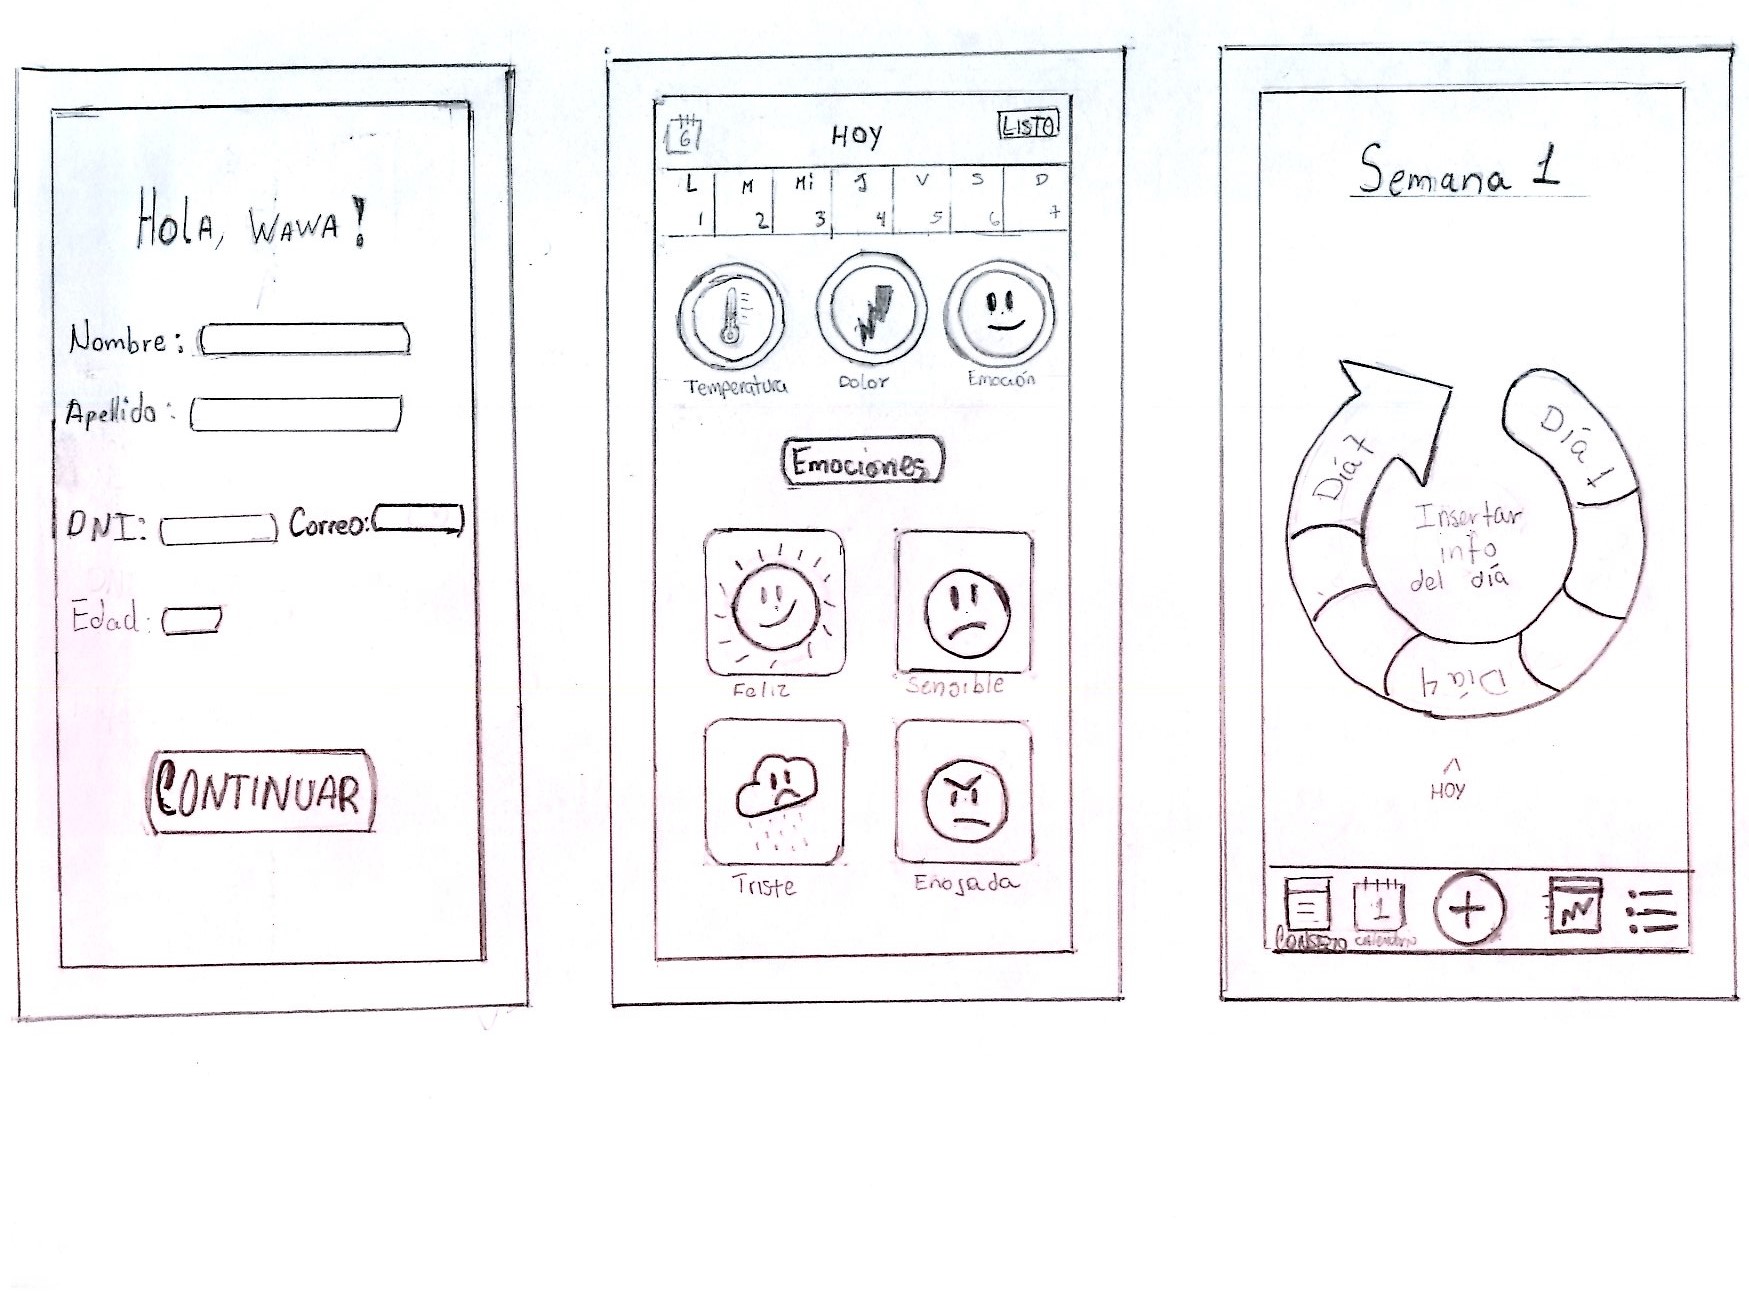 Hola, WAWA!
Nombre:
Apellido:
DNI: Correo:
Edad:
CONTINUAR
6 HOY LISTO
L M Mi J V S D
1 2 3 4 5 6 7
Temperatura Dolor Emoción
Emociones
Feliz Sensible
Triste Enojada
Semana 1
Día 1
Día 7
Insertar
info
del día
Día 4
HOY
1
CONSEJO calendario